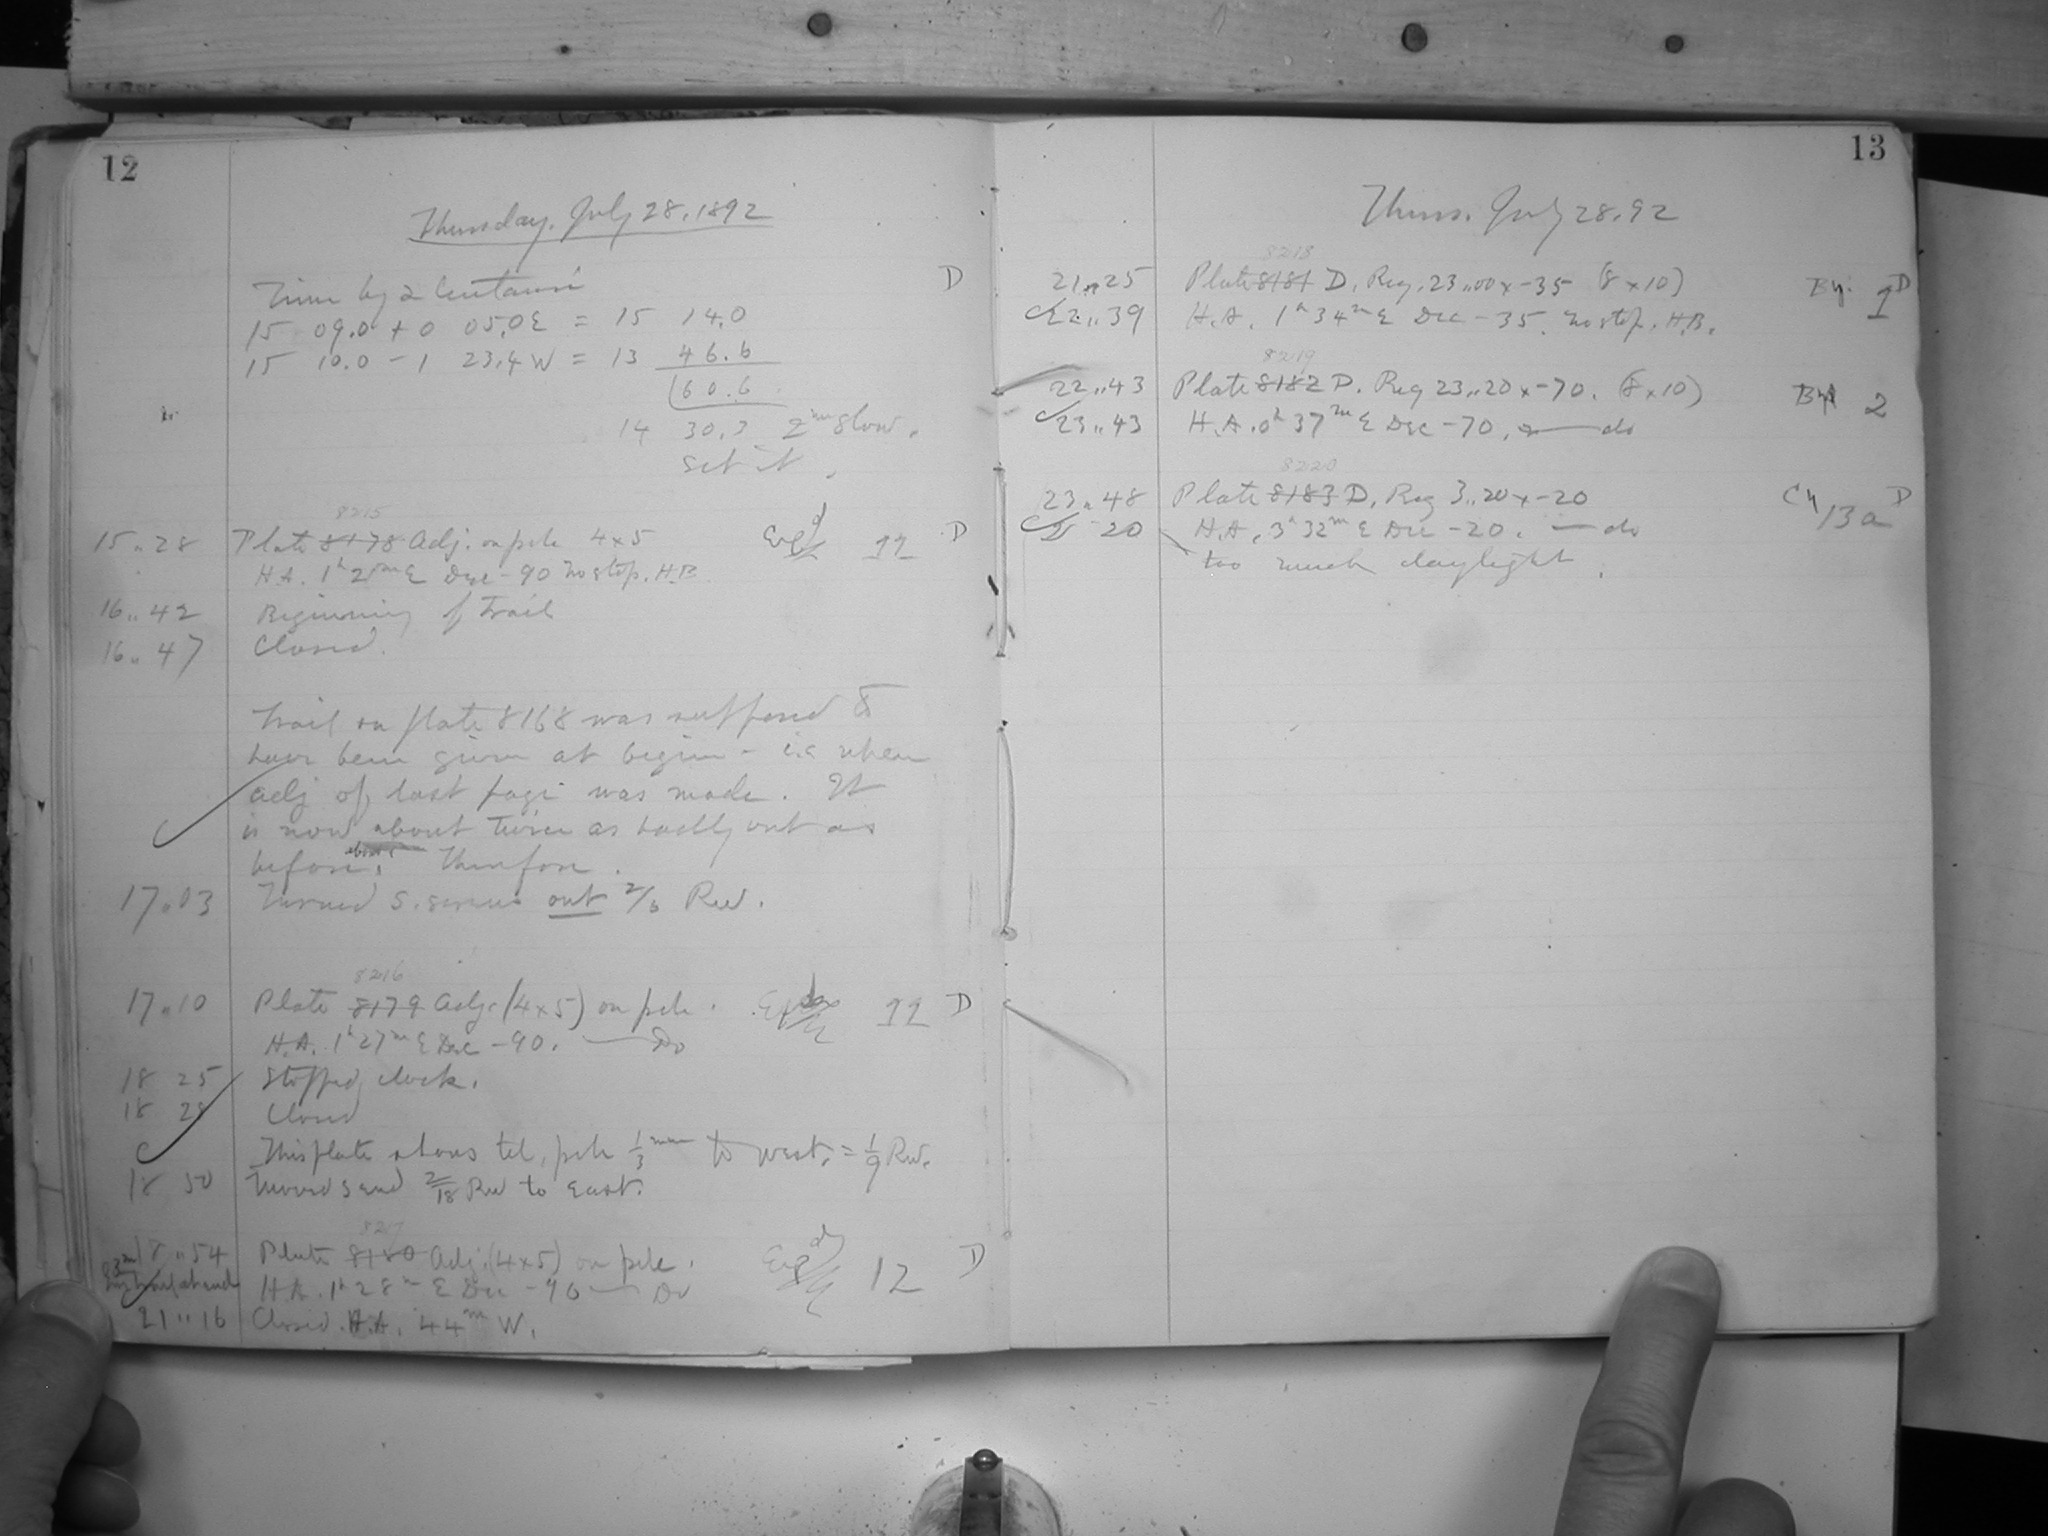 12
Thursday, July 28, 1892
Time by α Centauri D
15 09.0 + 0 05.0 E = 15 14.0
15 10.0 - 1 23.4 W = 13 46.6
60.6
14 30.3 2m slow.
set it.
8215
15 28 Plate 8178 Adj. on pole 4x5 11 D
H.A. 1h 25m E Dec -90 no stop. H.B.
16 42 Beginning of trail
16 47 Closed.
Trail on plate 8168 was supposed to
have been given at begin - i.e when
adj of last page was made. It
is now about twice as badly out as
before, therefore.
17 03 Turned S. screws out 2/6 Rev.
8216
17 10 Plate 8179 Adj. (4x5) on pole. 11 D
H.A. 1h 27m E Dec -90. Do
18 25 Stopped clock.
18 28 Closed
C This plate shows tel. pole 1/3 mm to west. = 1/9 Rev.
18 50 Turned S end 2/18 Rev to East.
8217
18 54 Plate 8180 Adj. (4x5) on pole. 12 D
3m H.A. 1h 28m E Dec -90 Do
21 16 Closed. H.A. 44m W.
13
Thurs. July 28. 92
8218
21 25 Plate 8181 D. Reg. 23 00 x -35 (8 x 10) By. 1 D
C 22 39 H.A. 1h 34m E Dec -35. no stop. H.B.
8219
22 43 Plate 8182 D. Reg 23 20 x -70. (8 x 10) By 2
C 23 43 H.A. 0h 37m E Dec -70. do
8220
23 48 Plate 8183 D. Reg 3 20 x -20 Cy 13a D
20 H.A. 3h 32m E Dec -20. do
too much daylight.